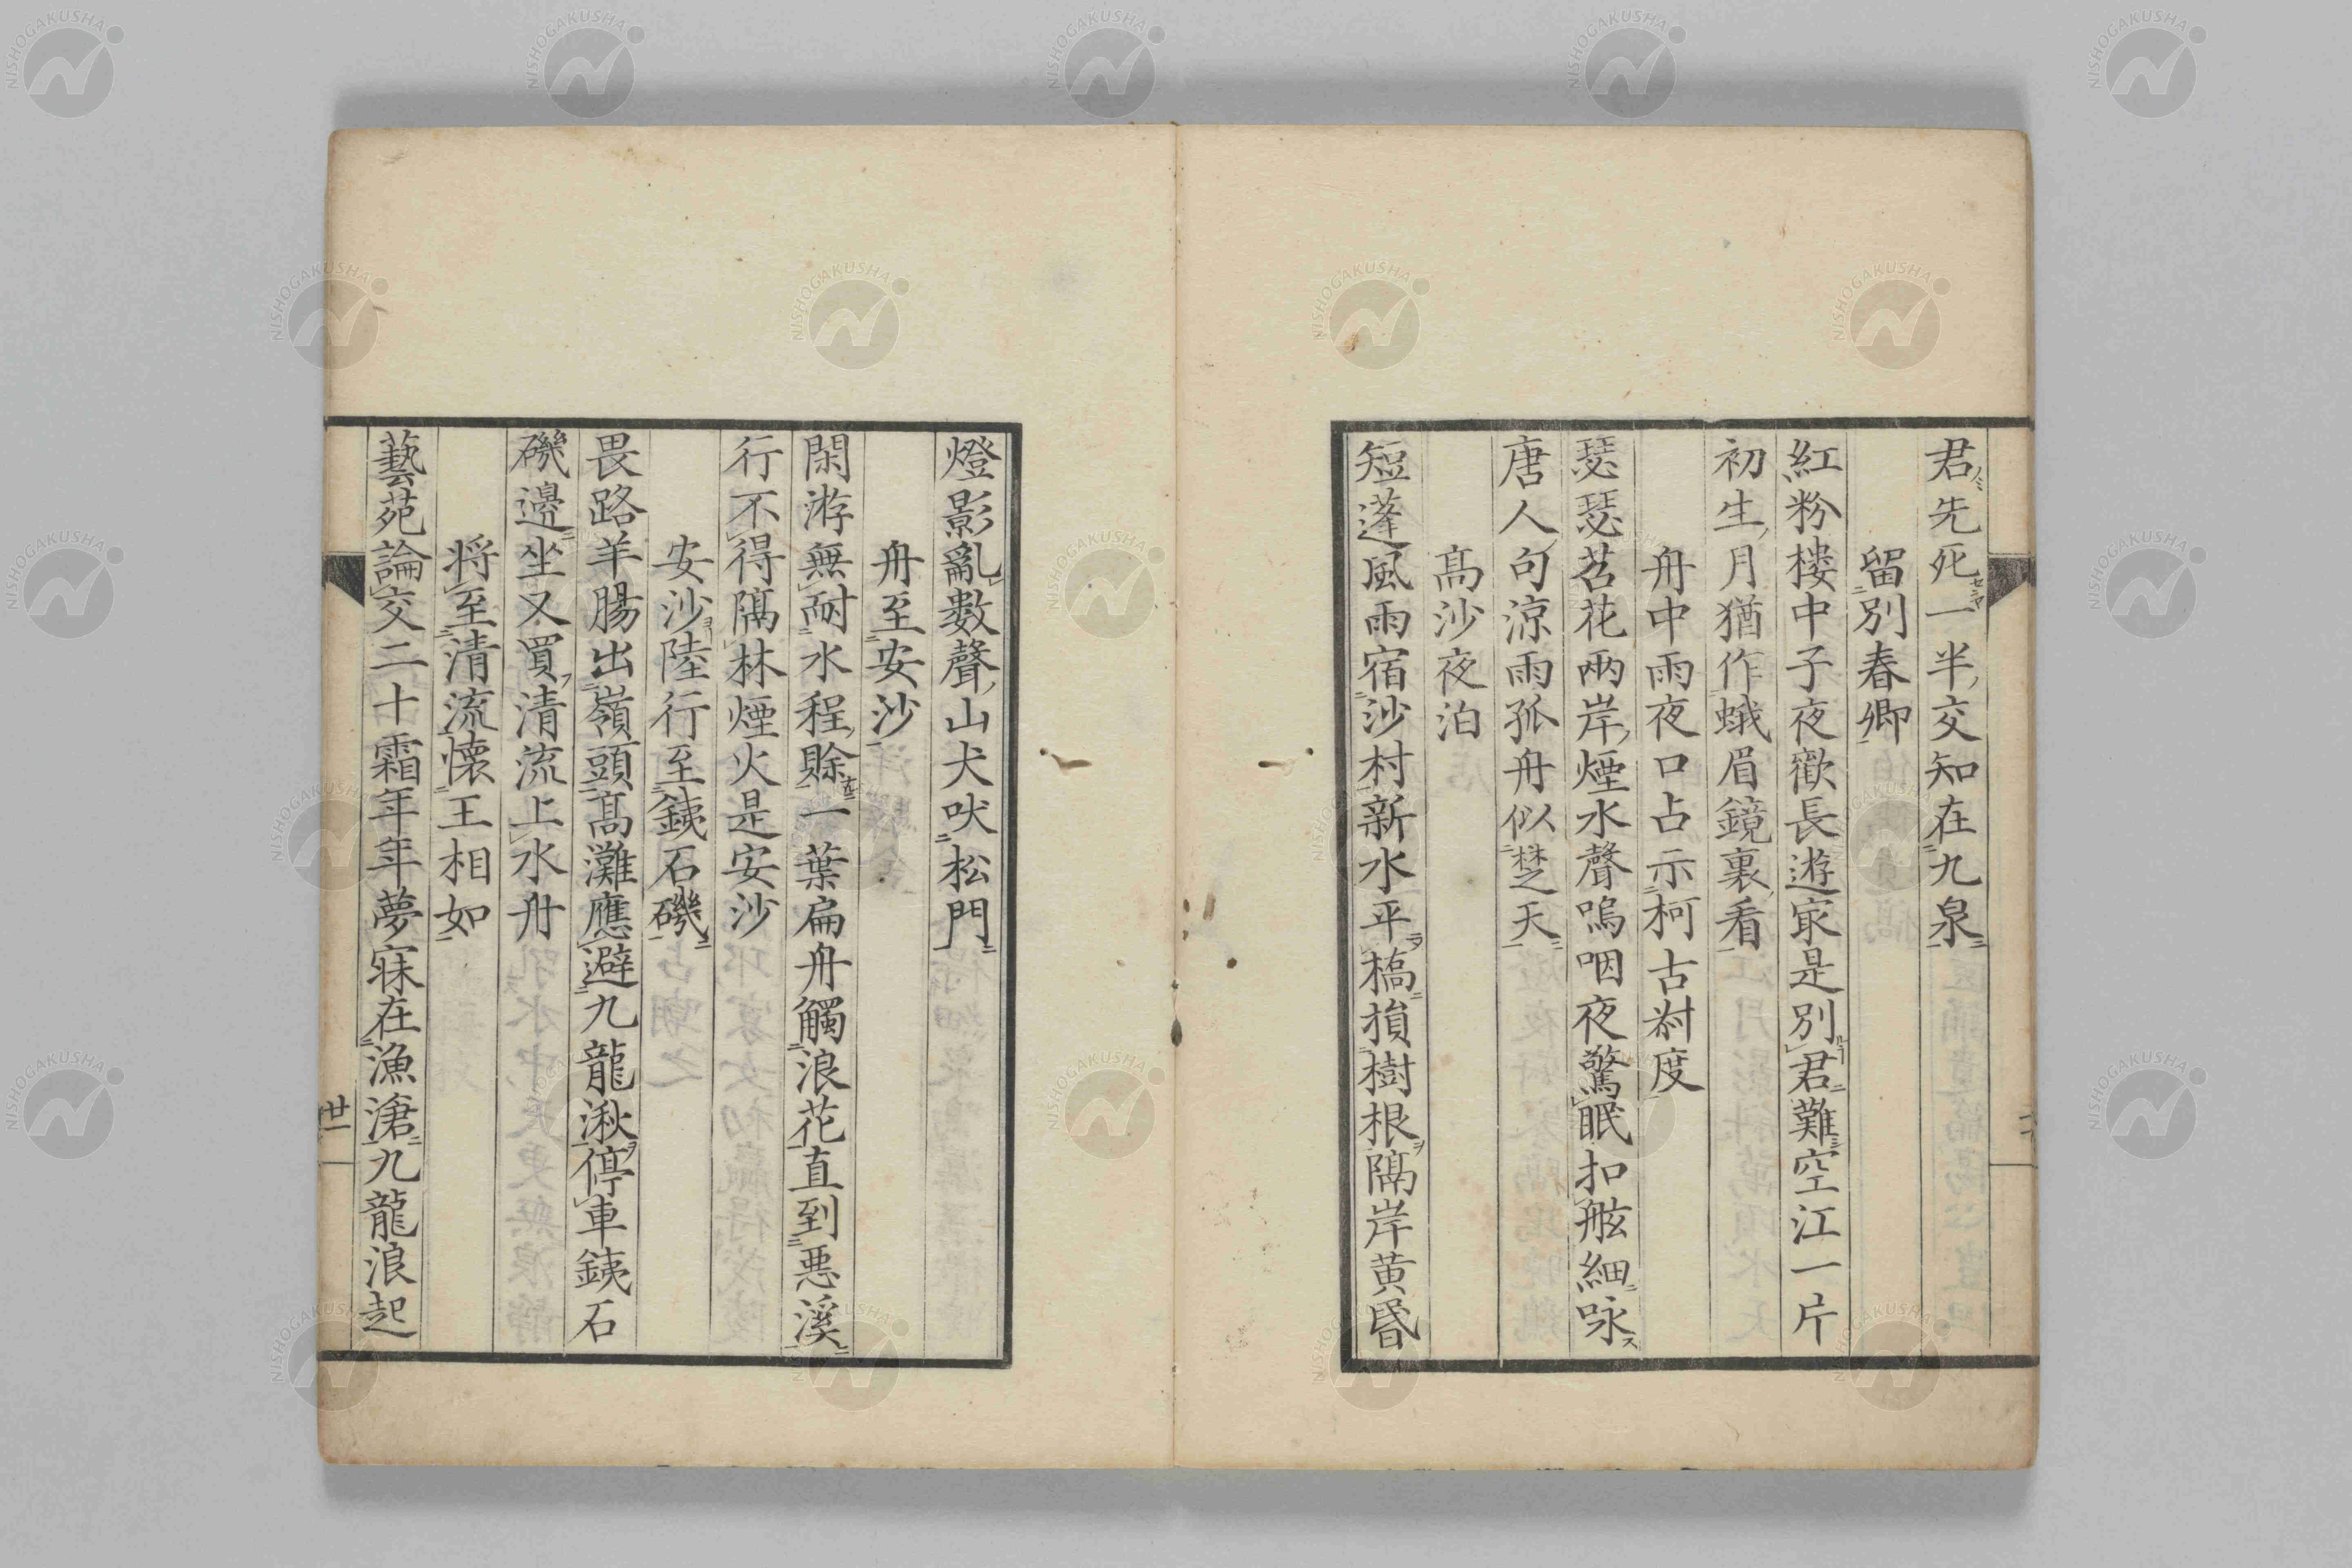 君先死一半交知在九泉
留別春卿
紅粉楼中子夜歡長遊冣是別君難空江一片
初生月猶作蛾眉鏡裏看
舟中雨夜口占示柯古尌度
瑟瑟苕花兩岸煙水聲嗚咽夜驚眠扣舷細咏
唐人句涼雨孤舟似楚天
髙沙夜泊
短蓬風雨宿沙村新水平橋損樹根隔岸黄昏
燈影亂數聲山犬吠松門
舟至安沙
閑游無耐水程賖一葉扁舟觸浪花直到悪溪
行不得隔林煙火是安沙
安沙陸行至銕石磯
畏路羊腸出嶺頭髙灘應避九龍湫停車銕石
磯邊坐又買清流上水舟
将至清流懷王相如
藝苑論交二十霜年年夢寐在漁滄九龍浪起
廿一
NISHOGAKUSHA